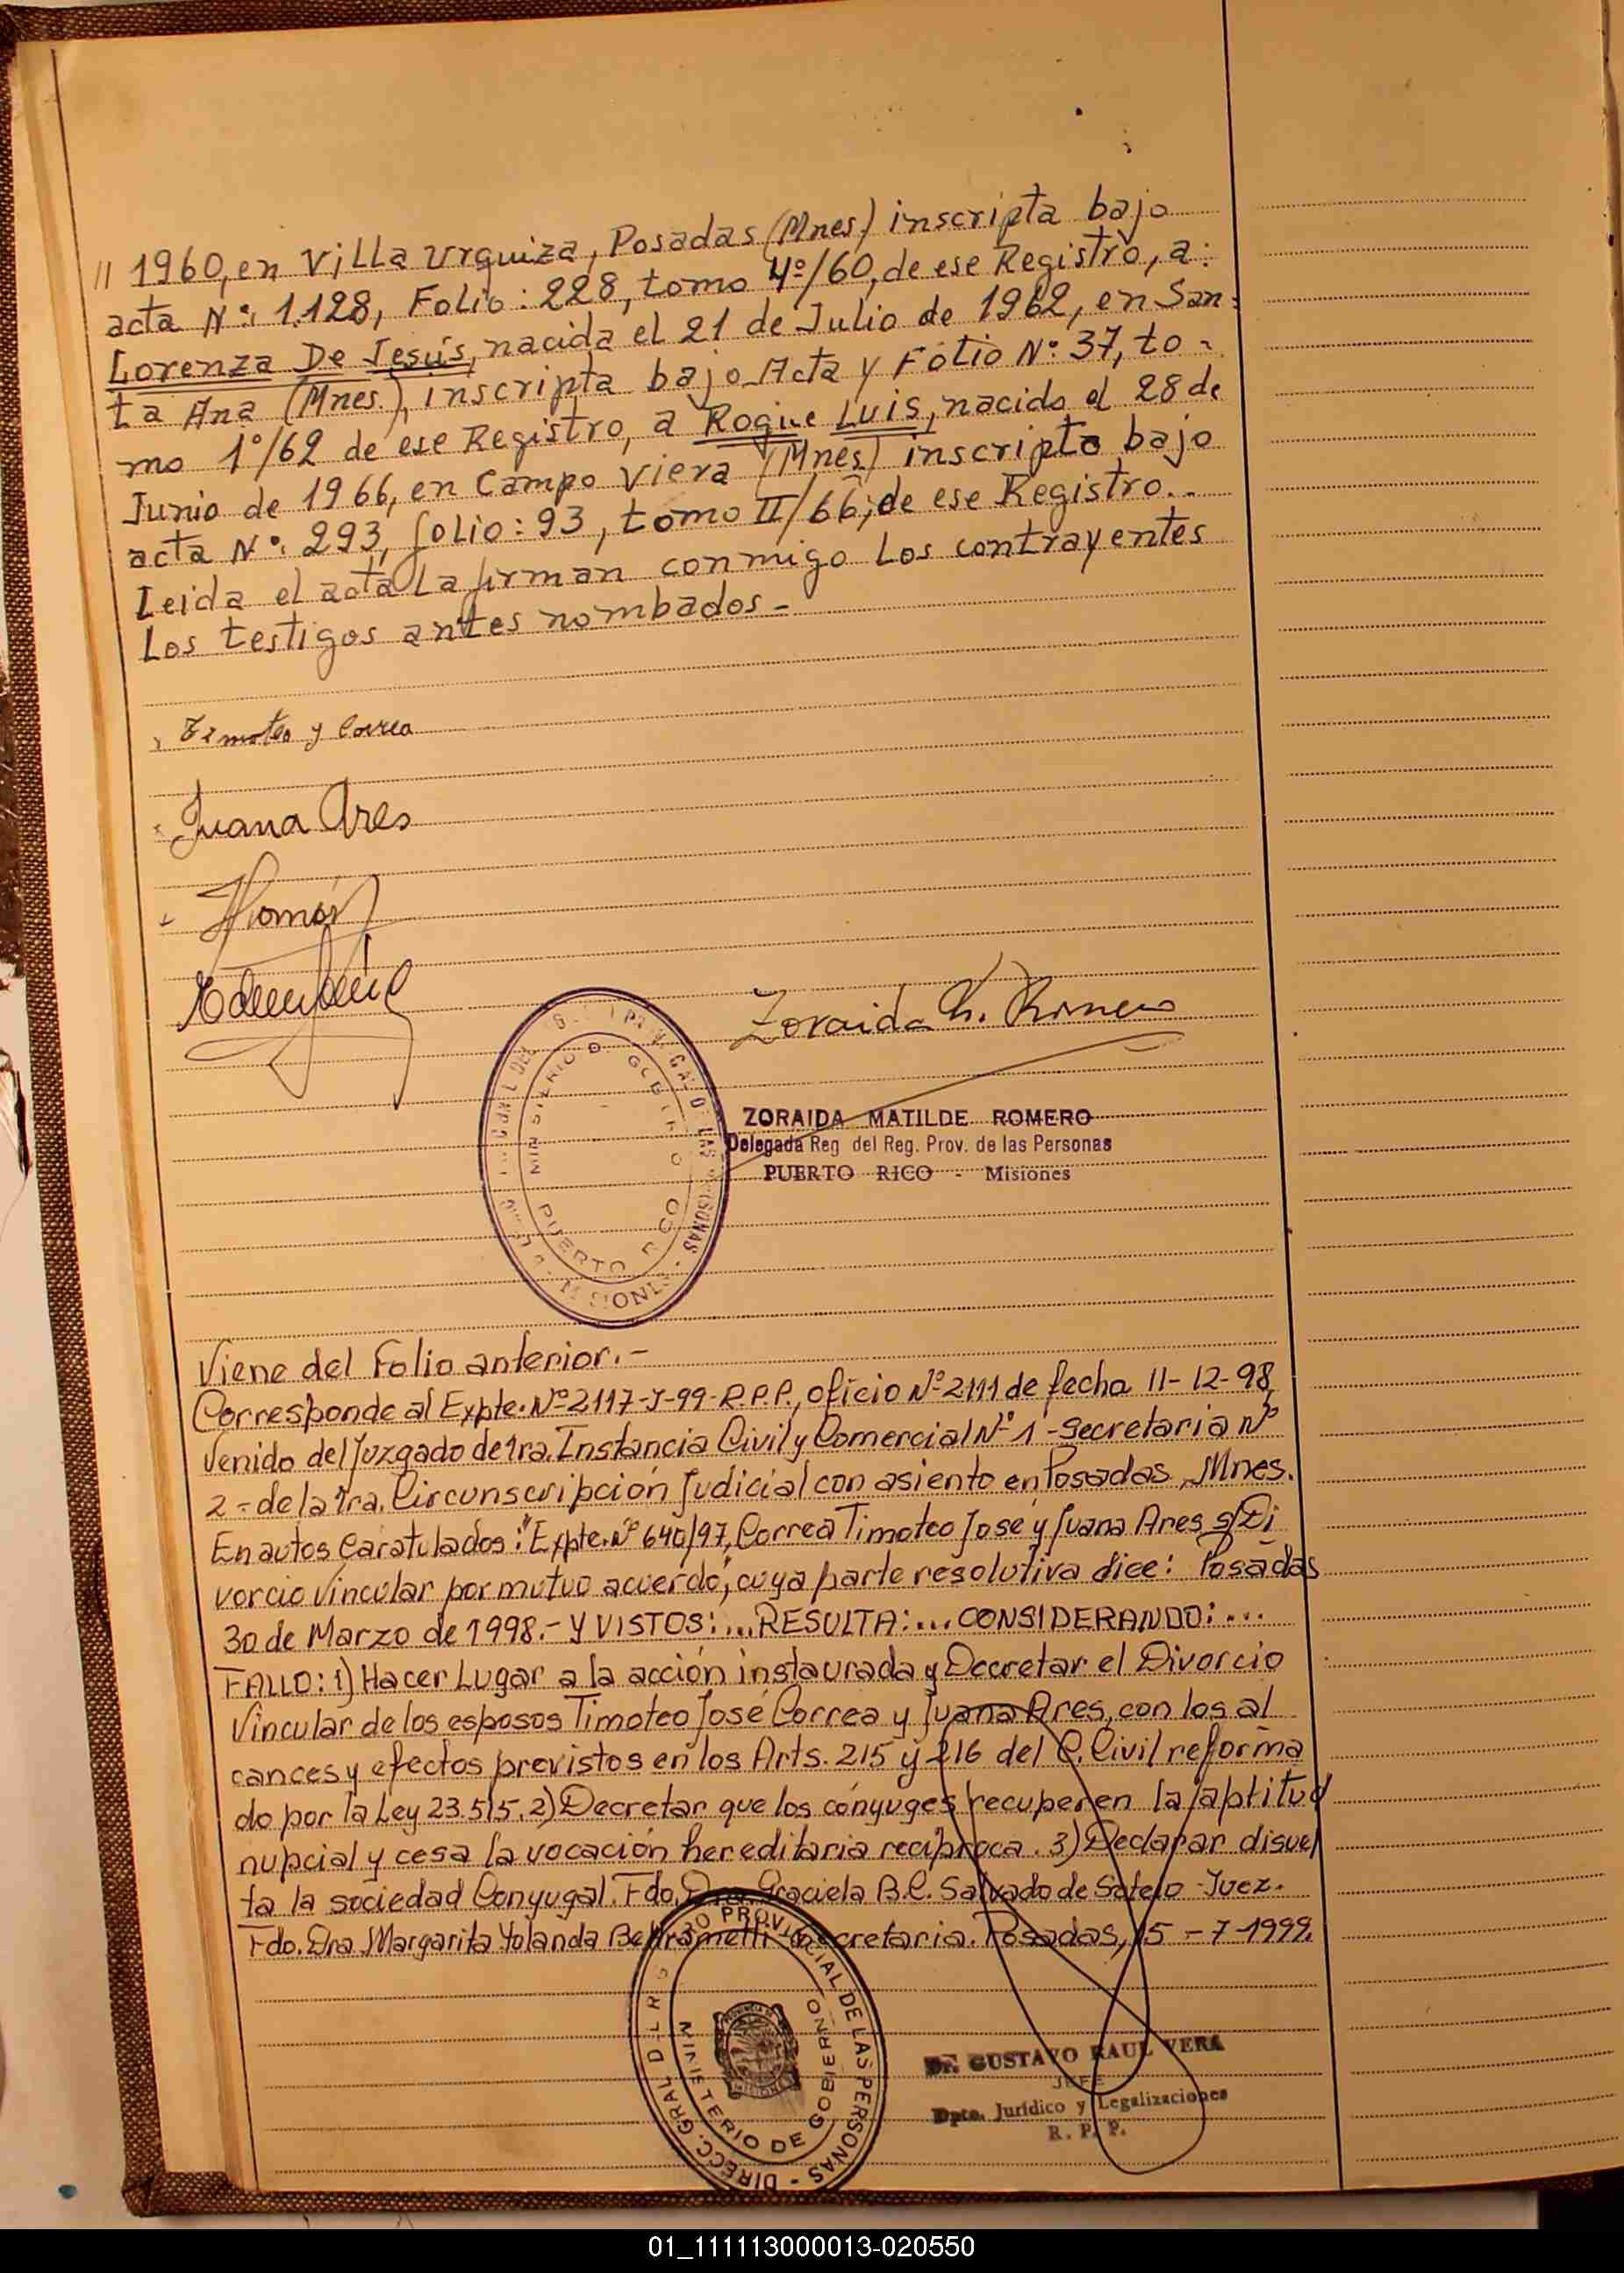 // 1960, en Villa Urquiza, Posadas (Mnes) inscripta bajo
acta Nº: 1.128, Folio: 228, tomo 4º/60, de ese Registro, a:
Lorenza De Jesús, nacida el 21 de Julio de 1962, en San-
ta Ana (Mnes.), inscripta bajo Acta y Folio Nº: 37, to-
mo 1º/62 de ese Registro, a Roque Luis, nacido el 28 de
Junio de 1966, en Campo Viera (Mnes) inscripto bajo
acta Nº: 293, folio: 93, tomo II/66, de ese Registro..
Leida el acta La firman conmigo Los contrayentes
Los testigos antes nombados-
Timoteo y Correa
Juana Ares
Zoraida M. Romero
ZORAIDA MATILDE ROMERO
Delegada Reg del Reg. Prov. de las Personas
PUERTO RICO - Misiones
MINISTERIO D GOBIERNO
PUERTO RICO
MISIONES
Viene del Folio anterior.-
Corresponde al Expte. Nº 2117-J-99-R.P.P., oficio Nº 2111 de fecha 11-12-98,
Venido del Juzgado de 1ra. Instancia Civil y Comercial Nº 1 - Secretaria Nº
2 - de la 1ra. Circunscripción Judicial con asiento en Posadas, Mnes.
En autos Caratulados: "Expte. Nº 640/97, Correa Timoteo José y Juana Ares s/Di
vorcio Vincular por mutuo acuerdo", cuya parte resolutiva dice: Posadas
30 de Marzo de 1998.- Y VISTOS:... RESULTA:... CONSIDERANDO:...
FALLO: 1) Hacer Lugar a la acción instaurada y Decretar el Divorcio
Vincular de los esposos Timoteo José Correa y Juana Ares, con los al
cances y efectos previstos en los Arts. 215 y 216 del C. Civil reforma
do por la Ley 23.515. 2) Decretar que los cónyuges recuperen la aptitud
nupcial y cesa la vocación hereditaria recíproca. 3) Declarar disuel
ta la sociedad Conyugal. Fdo. Dra. Graciela B.C. Salvado de Sotelo - Juez.
Fdo. Dra Margarita Yolanda Beltrametti - Secretaria. Posadas, 15-7-1999.
DIRECC. GRAL D L R PROVINCIAL DE LAS PERSONAS
MINISTERIO DE GOBIERNO
Dr. GUSTAVO RAUL VERA
JEFE
Dpto. Jurídico y Legalizaciones
R. P. P.
01_111113000013-020550